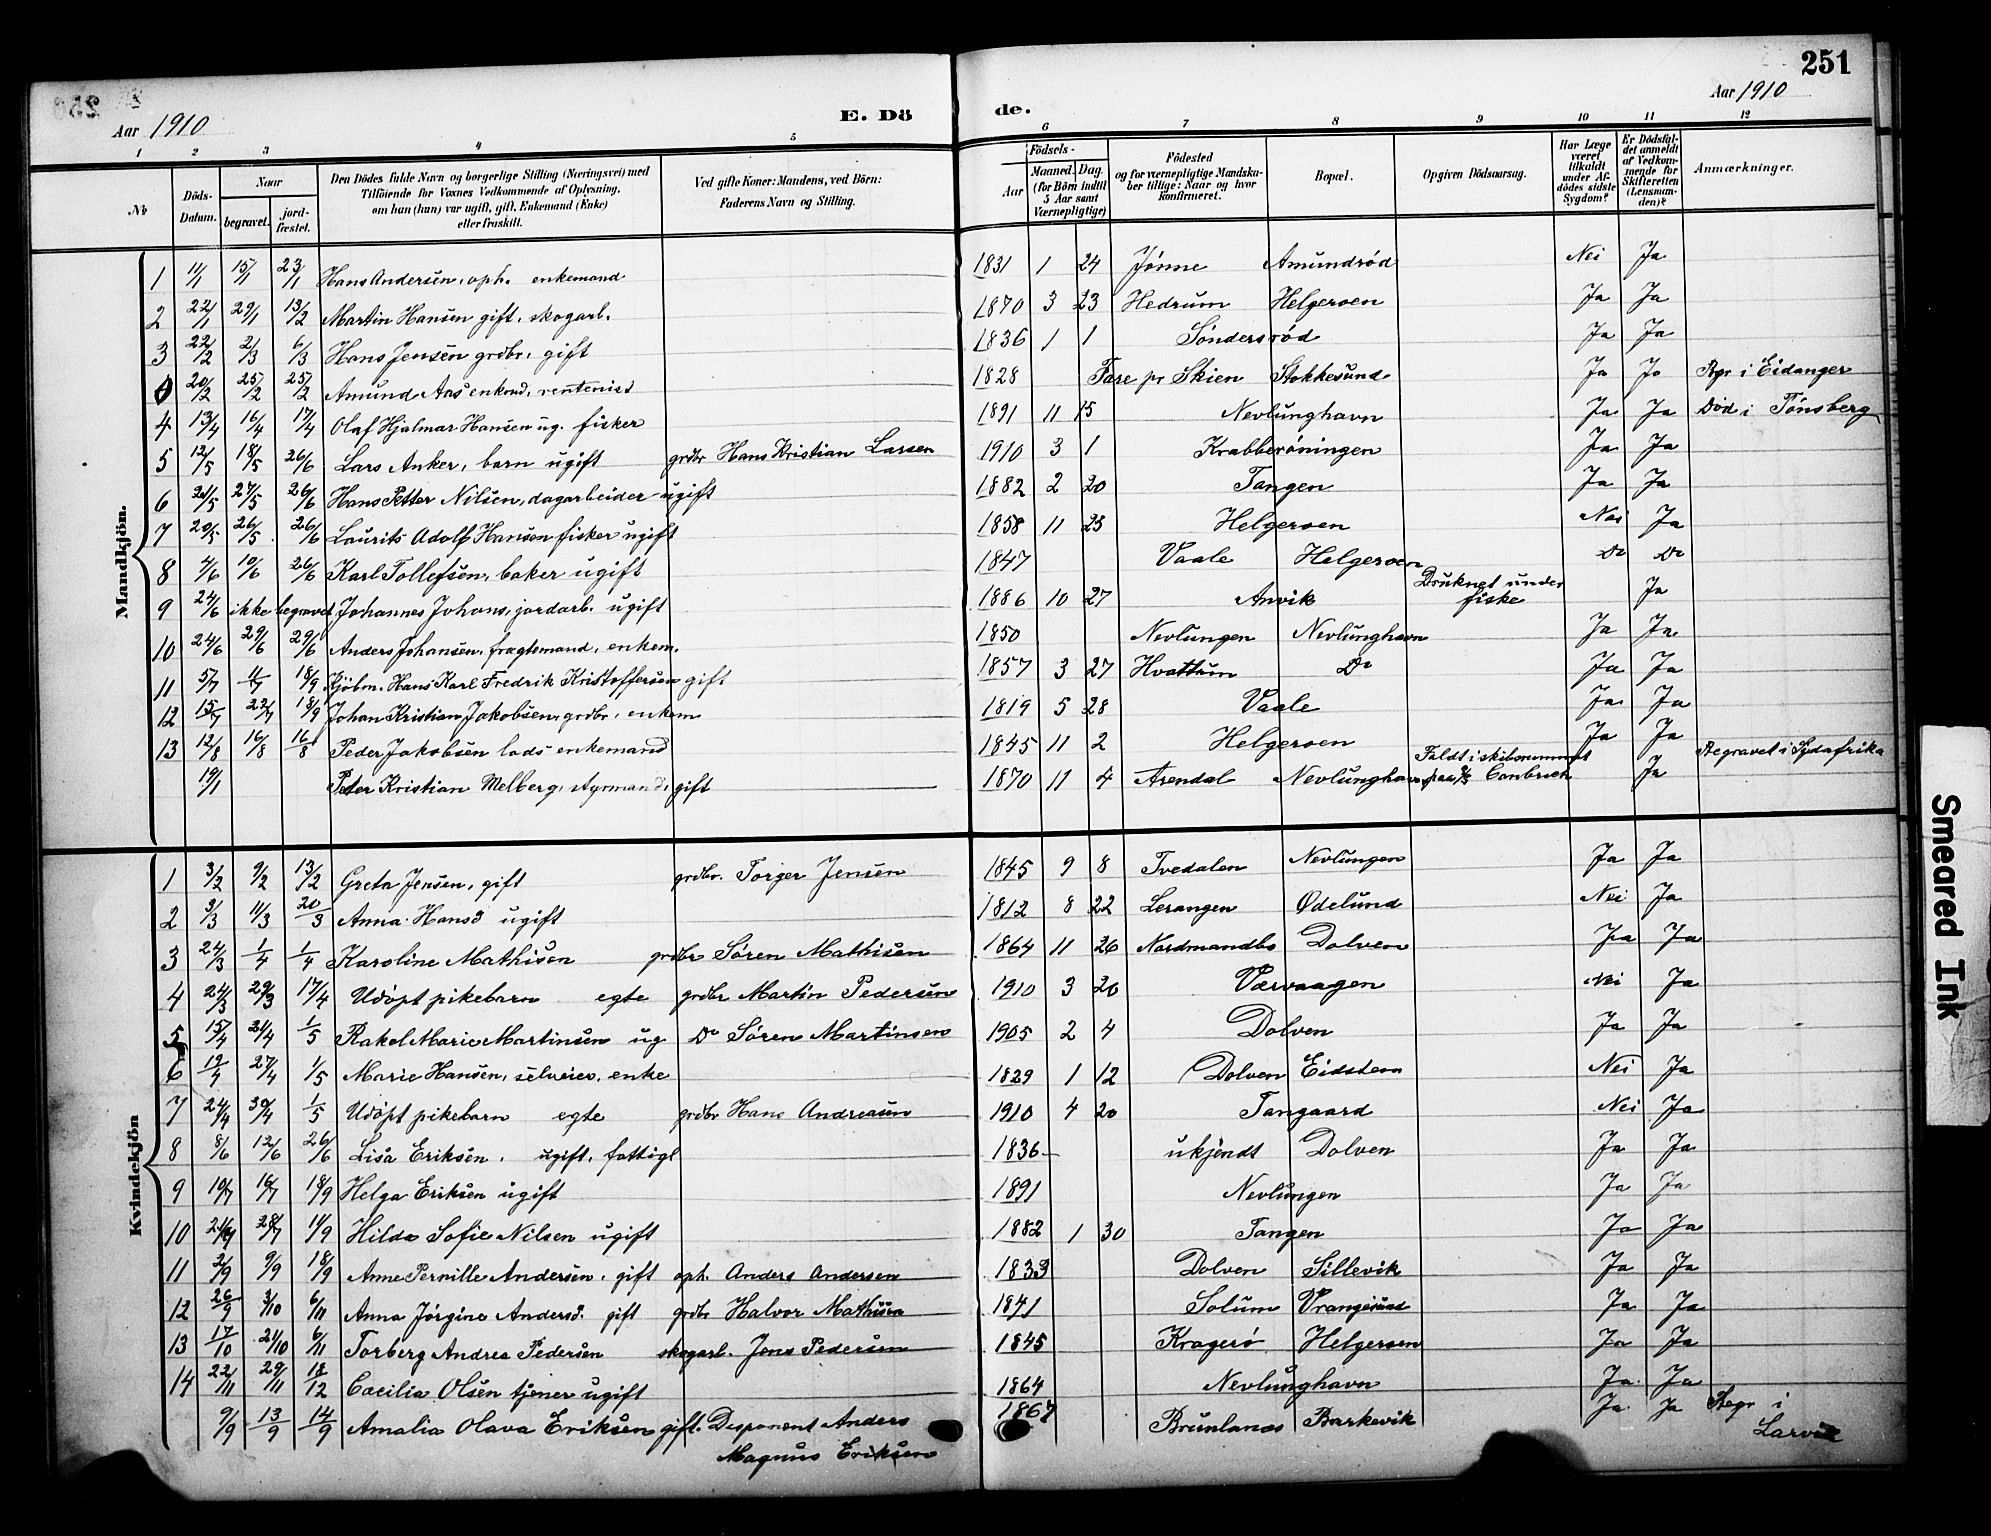 251
Aar 1910 E. Dö de. Aar 1910
1 2 3 4 5 6 7 8 9 10 11 12
No
Döds-Datum.
Naar begravet. jordfæstet.
Den Dödes fulde Navn og borgerlige Stilling (Næringsvei) med Tilföiende for Voxnes Vedkommende af Oplysning, om han (hun) var ugift, gift, Enkemand (Enke) eller fraskilt.
Ved gifte Koner: Mandens, ved Börn: Faderens Navn og Stilling.
Födsels-
Aar
Maaned. Dag. (for Börn indtil 5 Aar samt Værnepligtige)
Födested og for værnepligtige Mandskaber tillige: Naar og hvor konfirmeret.
Bopæl.
Opgiven Dödsaarsag.
Har Læge været tilkaldt under Afdödes sidste Sygdom?
Er Dödsfaldet anmeldt af Vedkommende for Skifteretten (Lensmanden)?
Anmærkninger.
Mandkjön.
1 11/1 15/1 23/1 Hans Andersen, oph. enkemand 1831 1 24 Jønne Amundrød Nei Ja
2 22/1 29/1 13/2 Martin Hansen gift, skogarb. 1870 3 23 Hedrum Helgeroen Ja Ja
3 22/2 2/3 6/3 Hans Jensen grdbr. gift 1836 1 1 Søndersrød Ja Ja
0 20/2 25/2 25/2 Amund Aas enkmd, rentenist 1828 Fare pr Skien Stokkesund Ja Ja Begr i Eidanger
4 13/4 16/4 17/4 Olaf Hjalmar Hansen ug. fisker 1891 11 15 Nevlunghavn Ja Ja Död i Tønsberg
5 12/5 18/5 26/6 Lars Anker, barn ugift grdbr Hans Kristian Larsen 1910 3 1 Krabberøningen Ja Ja
6 21/5 27/5 26/6 Hans Petter Nilsen, dagarbeider ugift 1882 2 20 Tangen Ja Ja
7 20/5 26/5 26/6 Laurits Adolf Hansen fisker ugift 1858 11 25 Helgeroen Nei Ja
8 4/6 10/6 26/6 Karl Tollefsen, baker ugift 1847 Vaale Helgeroen Do Do
9 24/6 ikke begravet, Johannes Johans, jordarb. ugift 1886 10 27 Anvik Druknet under fiske Ja
10 24/6 29/6 29/6 Anders Johansen, fragtemand, enkem. 1850 Nevlungen Nevlunghavn Ja Ja
11 5/7 11/7 18/9 Kjöbm. Hans Karl Fredrik Kristoffersen gift 1857 3 27 Hvattum Do Ja Ja
12 15/7 22/7 18/9 Johan Kristian Jakobsen, grdbr, enkem 1819 5 28 Vaale Ja Ja
13 12/8 16/8 16/8 Peder Jakobsen lods enkemand 1845 11 2 Helgeroen Ja Ja
19/1 Peter Kristian Melberg, styrmand, gift 1870 11 4 Arendal Nevlunghavn Faldt i skibsrummet Ja Begravet i Sydafrika
Kvindekjön
1 3/2 9/2 13/2 Greta Jensen, gift grdbr. Torger Jensen 1845 9 8 Tvedalen Nevlungen Ja Ja
2 3/3 11/3 20/3 Anna Hansd ugift 1812 8 22 Lerangen Ødelund Nei Ja
3 24/3 1/4 1/4 Karoline Mathisen grdbr Søren Mathisen 1864 11 26 Nordmandbo Dolven Ja Ja
4 24/3 29/3 17/4 Udøpt pikebarn egte grdbr Martin Pedersen 1910 3 20 Værvaagen Nei Ja
5 15/4 21/4 1/5 Rakel Marie Martinsen ug Do Søren Martinsen 1905 2 4 Dolven Ja Ja
6 19/4 27/4 1/5 Marie Hansen, selveier, enke 1829 1 12 Dolven Eidsten Nei Ja
7 24/4 30/4 1/5 Udøpt pikebarn egte grdbr Hans Andreasen 1910 4 20 Tangaard Nei Ja
8 8/6 12/6 26/6 Lisa Eriksen, ugift, fattigl 1836 ukjendt Dolven Ja Ja
9 10/7 16/7 18/9 Helga Eriksen ugift 1891 Nevlungen Ja Ja
10 28/7 Hilda Sofie Nilsen ugift 1882 1 30 Tangen Ja Ja
11 2/9 9/9 18/9 Anne Pernille Andersen, gift oph. Anders Andersen 1833 Dolven Sillevik Ja Ja
12 26/9 3/10 6/11 Anna Jørgine Andersd. gift grdbr Halvor Mathisen 1841 Solum Vrangesund Ja Ja
13 17/10 21/10 6/11 Torberg Andrea Pedersen skogarb. Jens Pedersen 1845 Kragerö Helgeroen Ja Ja
14 22/11 29/11 18/12 Cacilia Olsen tjener ugift 1864 Nevlunghavn Ja Ja
9/9 13/9 14/9 Amalia Olava Eriksen gift. Disponent Anders Magnus Eriksen 1867 Brunlanes Barkevik Ja Ja Begr i Larvik
Smeared Ink